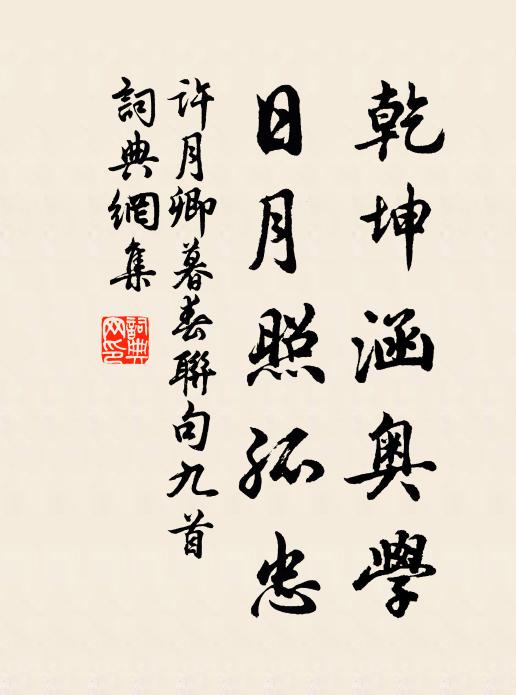 乾坤涵奥學
日月照孤忠
許月卿暮春聯句九首
詞典網集
詞典网印